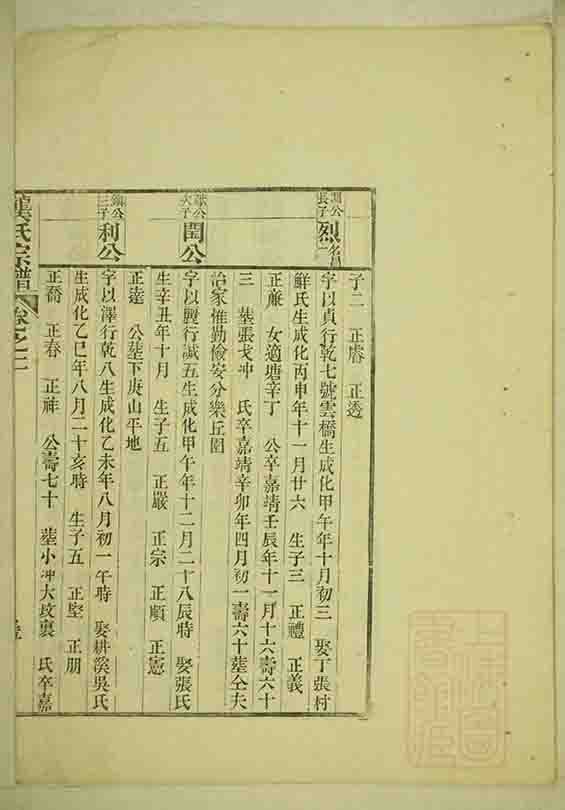 子二 正睿 正透
淵公長子
烈公
字以貞行乾七號雲橋生成化甲午年十月初三 娶丁張村
鮮氏生成化丙申年十一月廿六 生子三 正禮 正義
正廉 女適塘辛丁 公卒嘉靖壬辰年十一月十六壽六十
三 塟張戈冲 氏卒嘉靖辛卯年四月初一壽六十塟仝夫
治家惟勤儉安分樂丘園
公次子
閏公
字以 行誠五生成化甲午年十二月二十八辰時 娶張氏
生辛丑年十月 生子五 正嚴 正宗 正順 正憲
正達 公塟下庚山平地
公三子
利公
字以澤行乾八生成化乙未年八月初一午時 娶耕溪吳氏
生成化乙巳年八月二十亥時 生子五 正堅 正朋
正喬 正春 正祥 公壽七十 塟小冲大坟裏 氏卒嘉
龔氏宗譜 卷之二